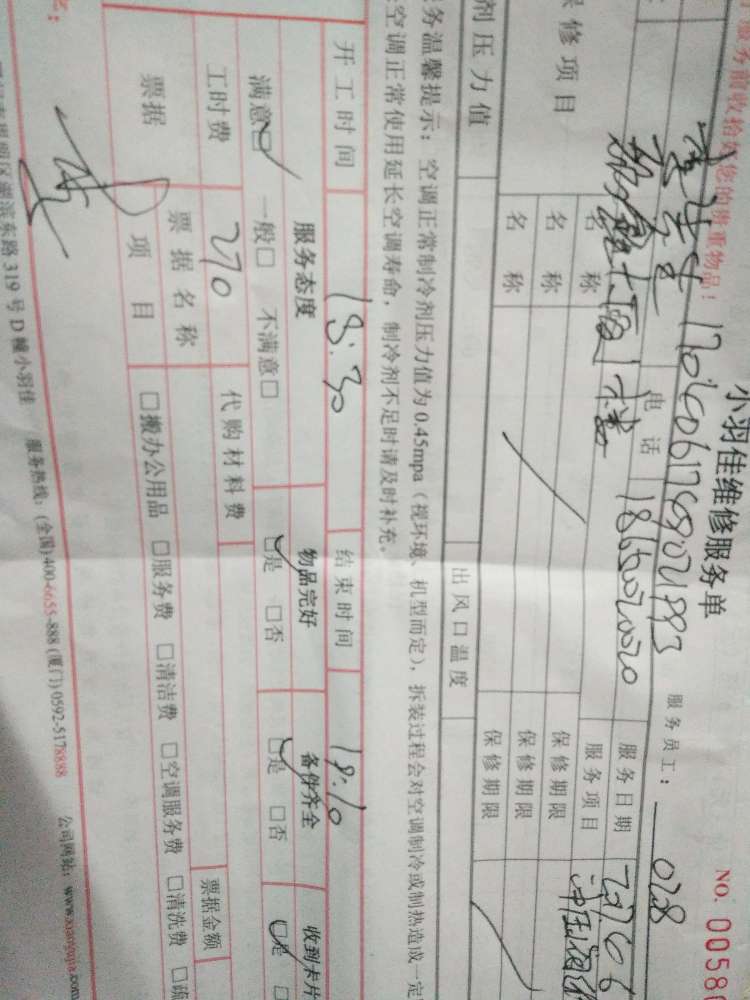 小羽佳维修服务单
NO. 0058
服务前收拾好您的贵重物品!
服务员工: 028
电话 18650020020
服务日期
修项目
名称
服务项目
名称
保修期限
名称
保修期限
保修期限
剂压力值
出风口温度
务温馨提示: 空调正常制冷剂压力值为0.45mpa (视环境、机型而定), 拆装过程会对空调制冷或制热造成一定
空调正常使用延长空调寿命, 制冷剂不足时请及时补充。
开工时间 18:30 结束时间 19:10
服务态度 物品完好 备件齐全 收到卡片
满意☑ 一般□ 不满意□ ☑是 □否 ☑是 □否 ☑是
工时费 270 代购材料费
票据 票据名称 票据金额
项目 □搬办公用品 □服务费 □清洁费 □空调服务费 □清洗费 □疏
东路319号D幢小羽佳 服务热线: (全国)400-6655-888 (厦门)0592-5178888 公司网站: www.xiaoyujia.com